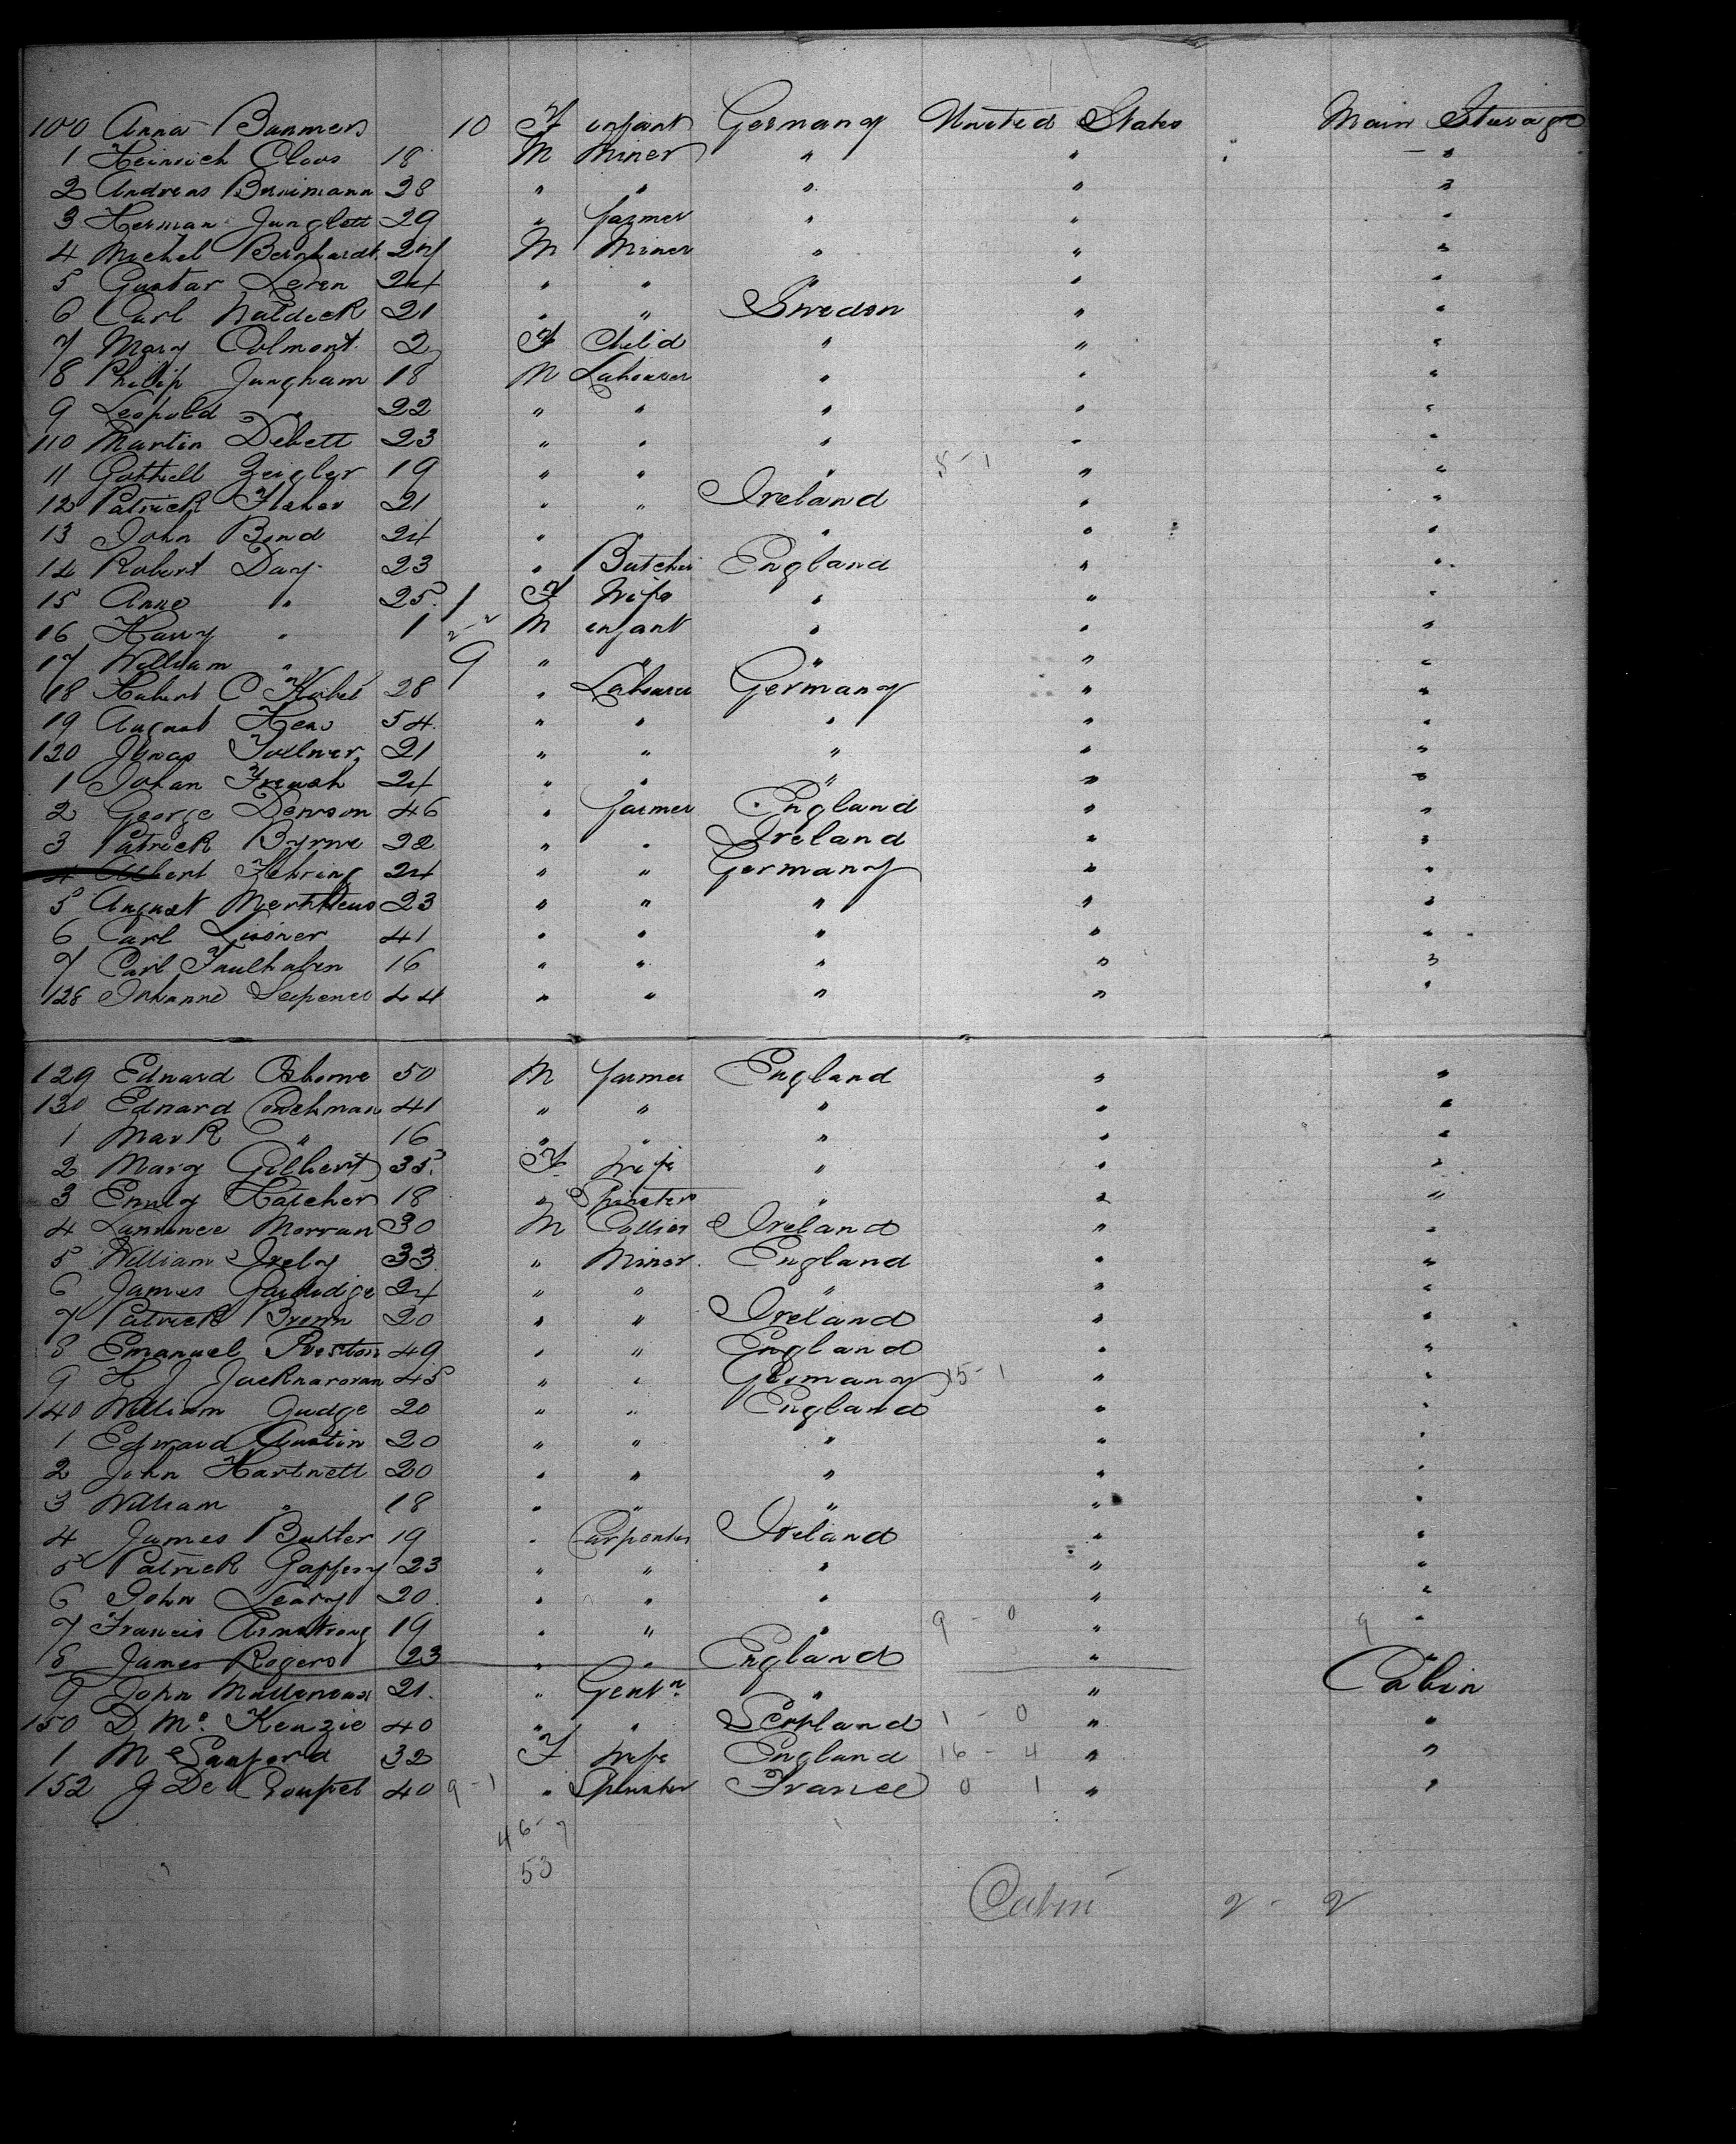 100 Anna Banmers 10 F infant Germany United States Main Steerage
1 Heinrich Claus 18 M Miner " " "
2 Andreas 28 " " " " "
3 Herman Junglett 29 " farmer " " "
4 Michel Bernhardt 27 M Miner " " "
5 Gustav Leren 24 " " " " "
6 Carl Waldeck 21 " " Sweden " "
7 Mary Colmont 2 F Child " " "
8 Philip Jungham 18 M Labourer " " "
9 Leopold " 22 " " " " "
110 Martin Debett 23 " " " " "
11 Zeigler 19 " " " 8 - 1 " "
12 Patrick 21 " " Ireland " "
13 John Bond 24 " " " " "
14 Robert Day 23 " Butcher England " "
15 Anne " 25 1 F Wife " " "
16 Harry " 1 2-2 M infant " " "
17 William " 9 " " " " "
18 Hubert C 28 " Labourer Germany " "
19 August 54 " " " " "
120 Jonas 21 " " " " "
1 Johan 24 " " " " "
2 George Denson 46 " farmer England " "
3 Patrick Byrne 22 " " Ireland " "
4 Albert Fehring 24 " " Germany " "
5 August 23 " " " " "
6 Carl Lisner 41 " " " " "
7 Carl Faulhaben 16 " " " " "
128 Johanne 44 " " " " "
129 Edward Osborne 50 M farmer England " "
130 Edward Coachman 41 " " " " "
1 Mark " 16 " " " " "
2 Mary Gilbert 35 F wife " " "
3 Emily Hatcher 18 " Spinster " " "
4 Lawrence Morran 30 M Collier Ireland " "
5 William Irely 33 " Miner England " "
6 James 24 " " " " "
7 Patrick Brenn 20 " " Ireland " "
8 Emanuel Preston 49 " " England " "
9 H J 45 " " Germany 15-1 " "
140 William Gudge 20 " " England " "
1 Edward Austin 20 " " " " "
2 John Hartnett 20 " " " " "
3 William " 18 " " " " "
4 James Butler 19 " Carpenter Ireland " "
5 Patrick Gaffery 23 " " " " "
6 John Leary 20 " " " " "
7 Francis Armstrong 19 " " " 9 - 0 " 9 "
8 James Rogers 23 " " England " "
9 John 21 " Gentn " " Cabin
150 D Mc Kenzie 40 " " Scotland 1 - 0 " "
1 M Sanford 32 F wife England 16 - 4 " "
152 J De Coupet 40 9-1 " Spinster France 0 1 " "
46-7
53
Cabin 2 - 2